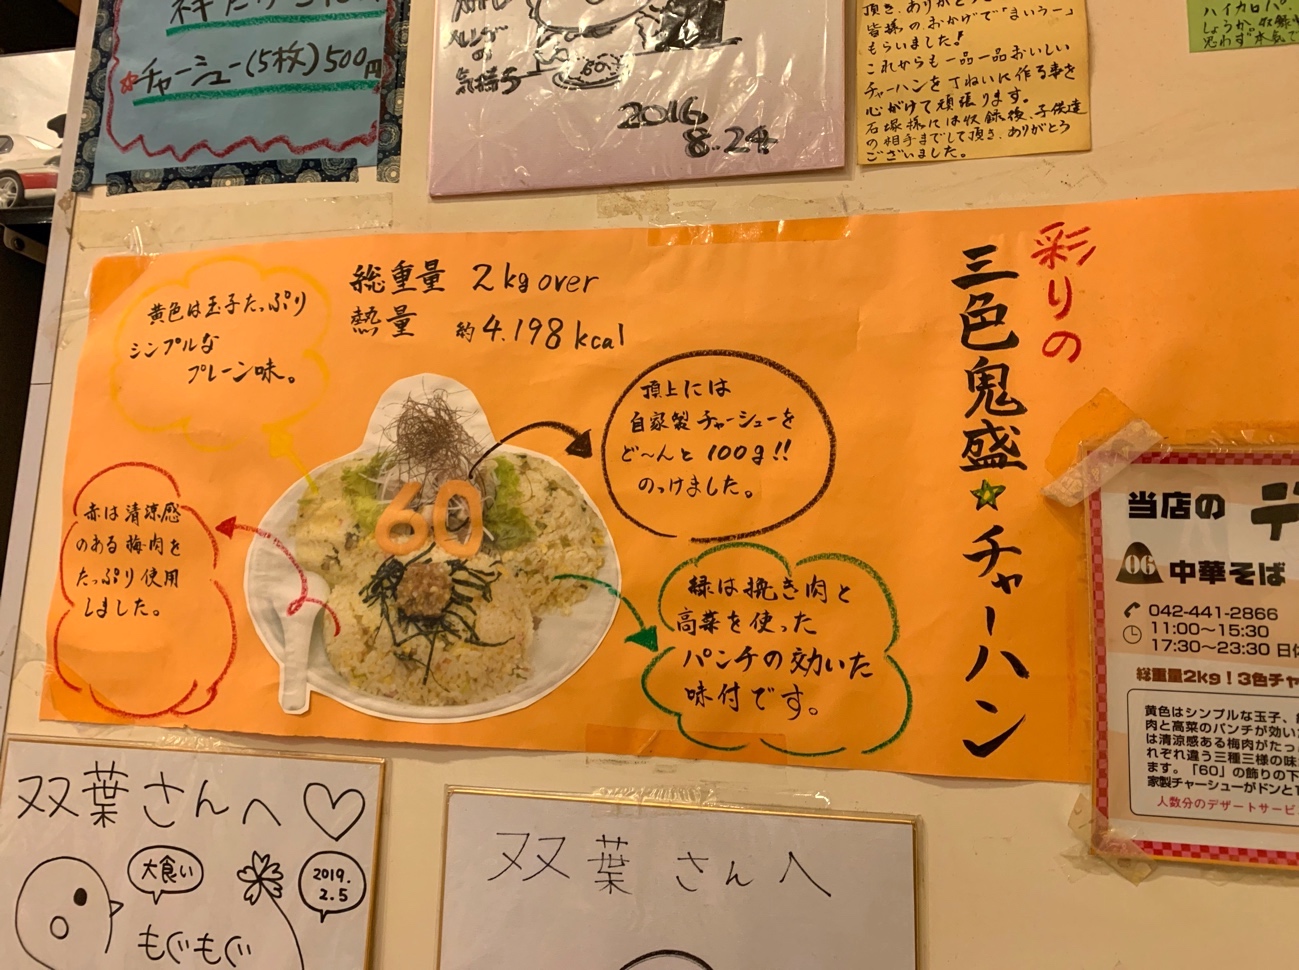 チャーシュー(5枚)500円
気持ち
2016
8.24
頂き、ありがとう
皆様のおかげで「まいうー」
もらいました!
これからも一品一品おいしい
チャーハンを丁ねいに作る事を
心がけて頑張ります。
石塚様には収録後、子供達
の相手までして頂き、ありがとう
ございました。
ハイカロ
彩りの
三色鬼盛★チャーハン
総重量 2kg over
熱量 約4.198kcal
黄色は玉子たっぷり
シンプルな
プレーン味。
頂上には
自家製チャーシューを
ど〜んと100g!!
のっけました。
60
赤は清涼感
のある梅肉を
たっぷり使用
しました。
緑は挽き肉と
高菜を使った
パンチの効いた
味付です。
当店の デ
06 中華そば
042-441-2866
11:00〜15:30
17:30〜23:30 日休
総重量2kg!3色チャ
黄色はシンプルな玉子、
肉と高菜のパンチが効い
は清涼感ある梅肉がたっ
れぞれ違う三種三様の味
ます。「60」の飾りの下
家製チャーシューがドンと1
人数分のデザートサービ
双葉さんへ♡
大食い
2019.
2.5
もぐもぐ
双葉さんへ